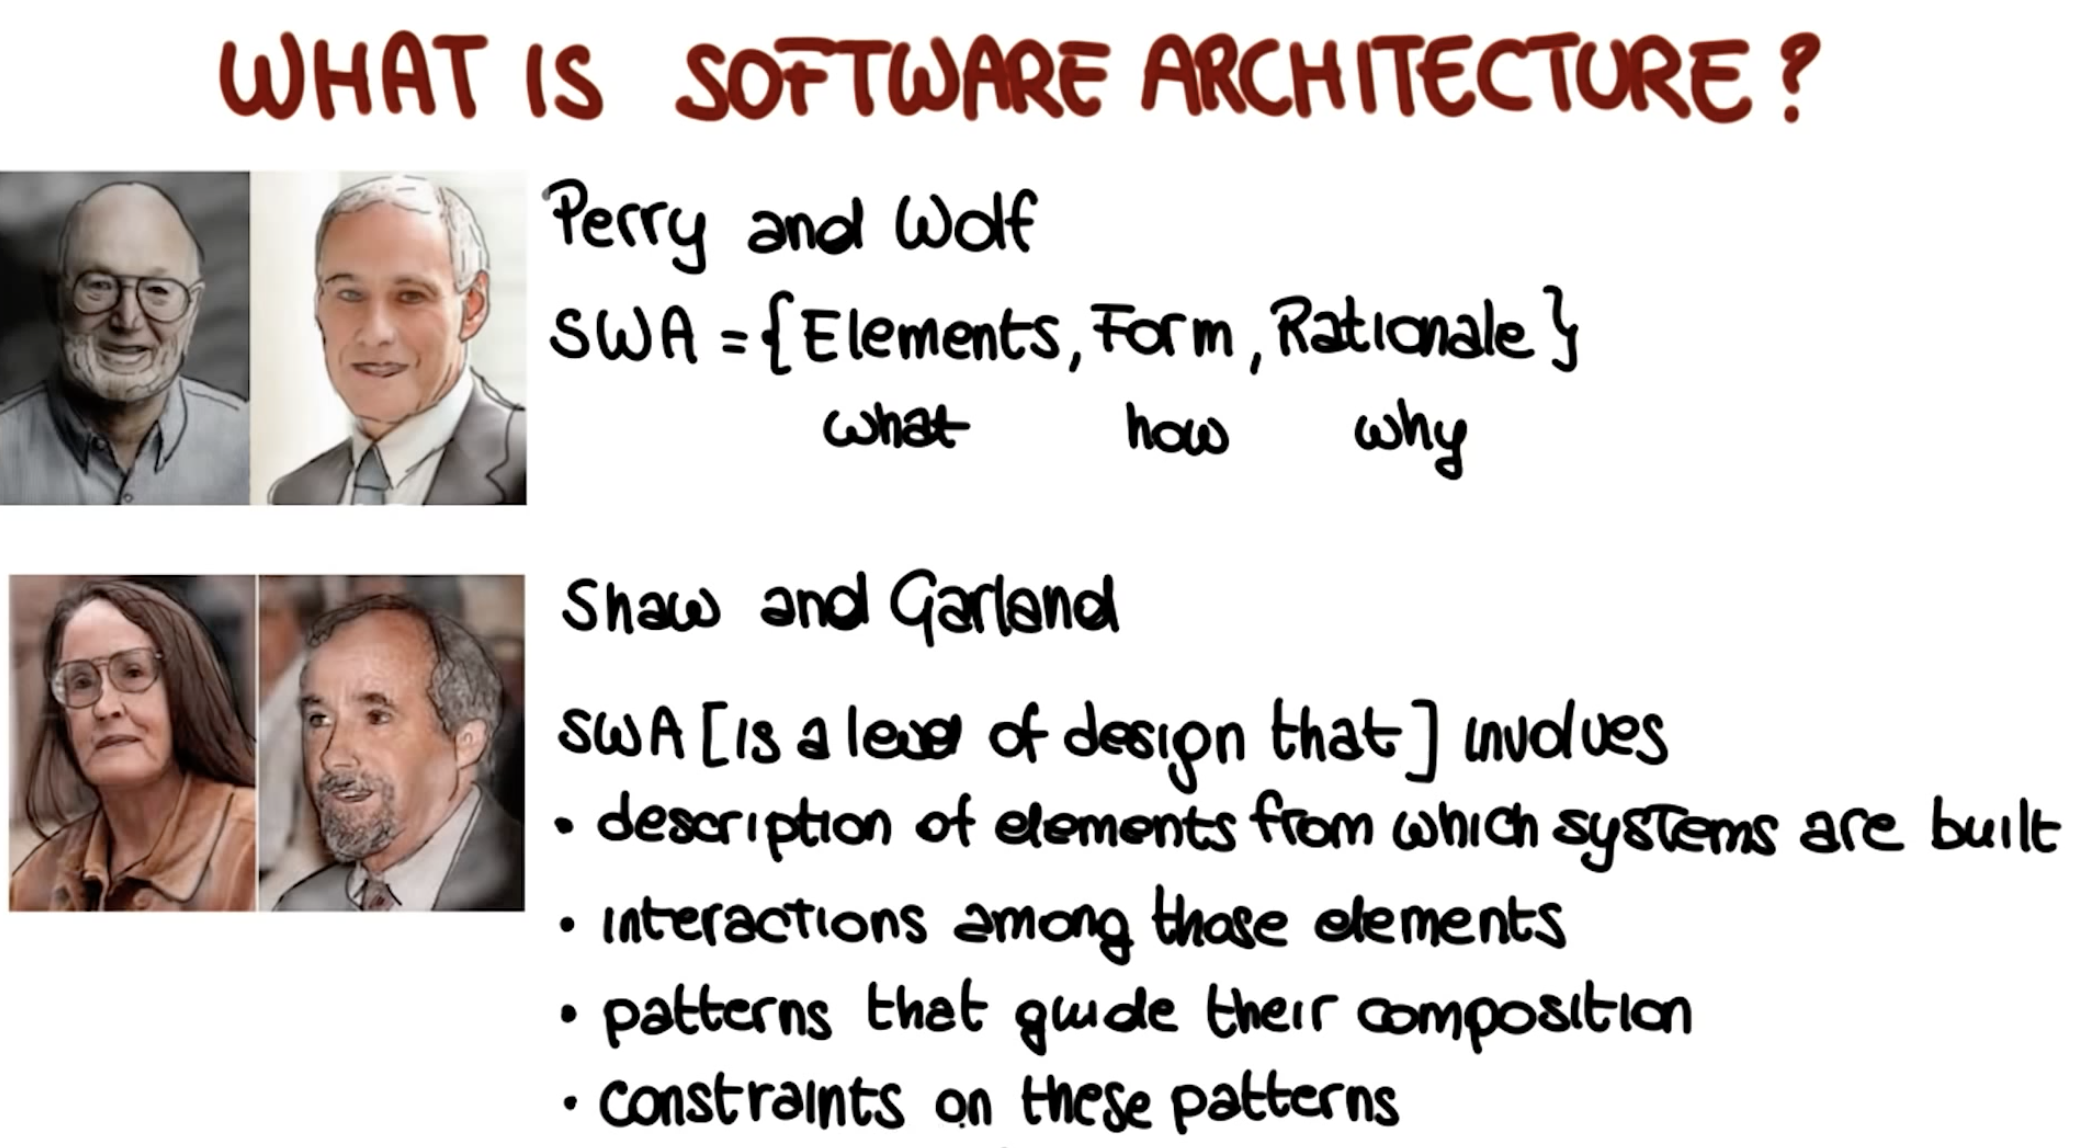 WHAT IS SOFTWARE ARCHITECTURE?
Perry and Wolf
SWA = {Elements, Form, Rationale}
what how why
Shaw and Garland
SWA [is a level of design that] involves
• description of elements from which systems are built
• interactions among those elements
• patterns that guide their composition
• constraints on these patterns